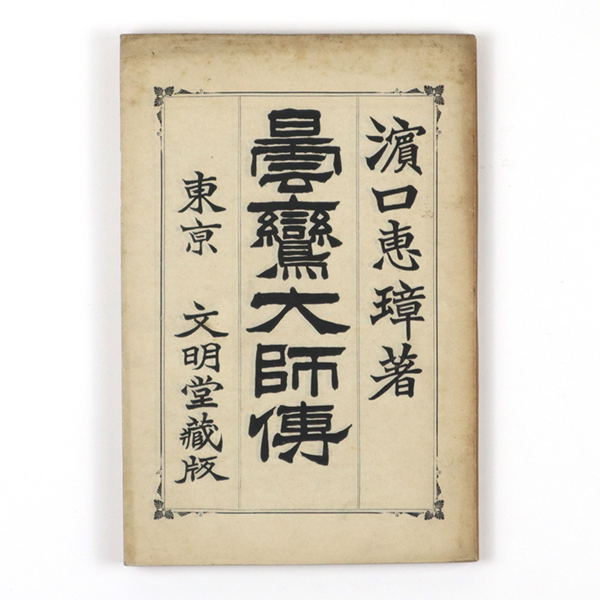 濱口惠璋著
曇鸞大師傳
東京 文明堂藏版